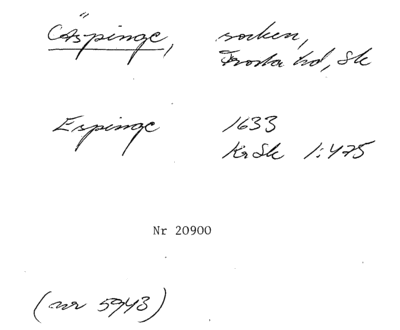 Äspinge, socken,
Frosta hd, Sk
Espinge 1633
KrSk 1:475
Nr 20900
(nr 5943)